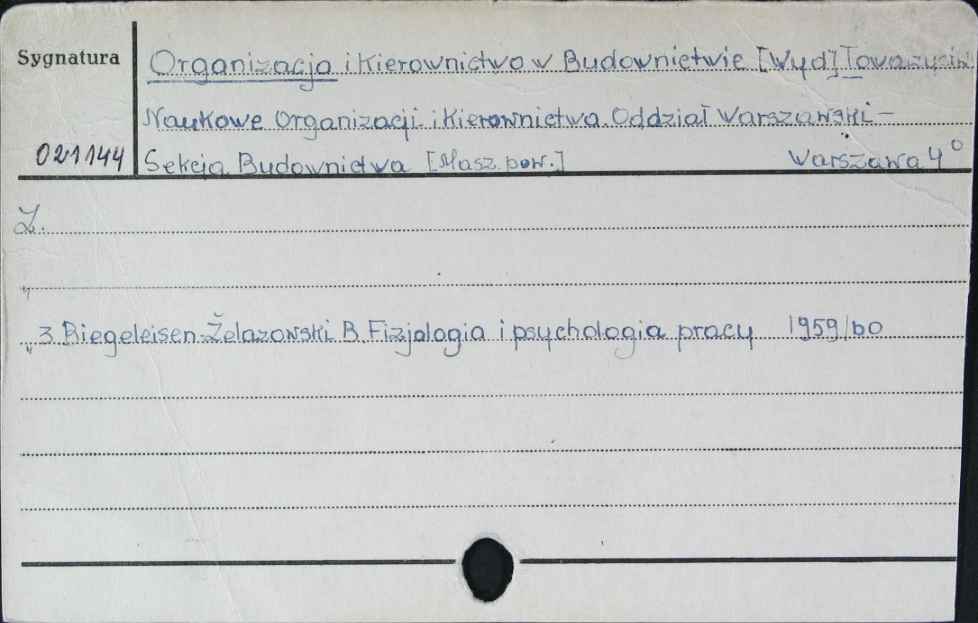 Sygnatura
Organizacja i Kierownictwo w Budownictwie [Wyd] Towarzystw.
Naukowe Organizacji i Kierownictwa. Oddział Warszawski -
021144
Sekcja Budownictwa [Masz. pow.] Warszawa 4°
Z.
3. Biegeleisen-Żelazowski B. Fizjologia i psychologia pracy 1959/60